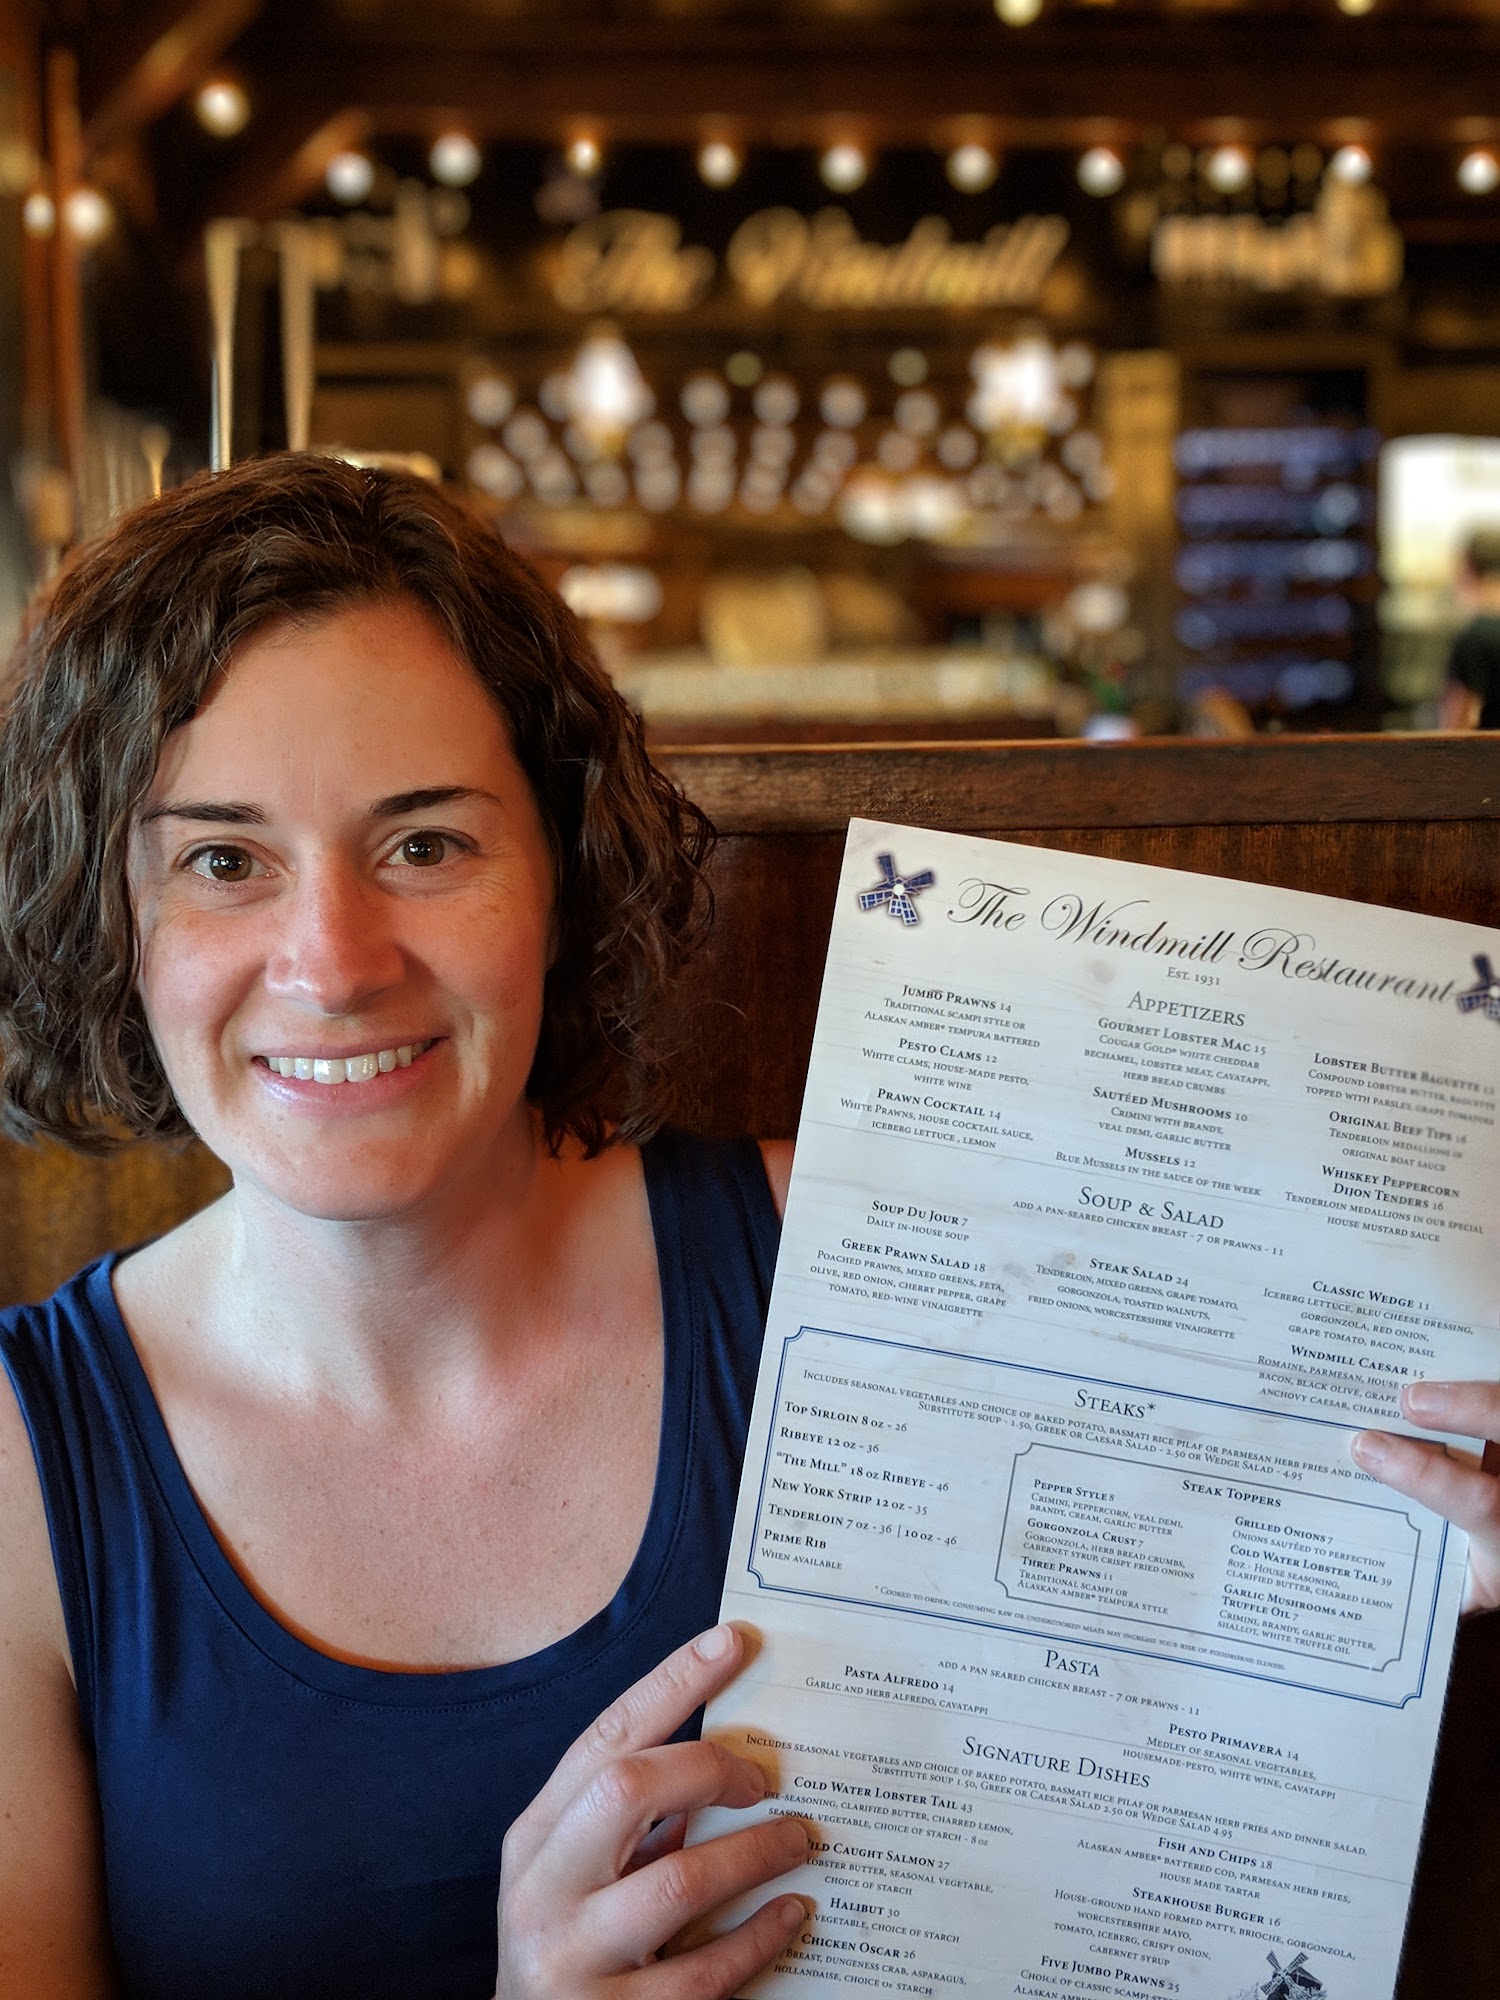 The Windmill
The Windmill Restaurant
Est. 1931
Appetizers
Jumbo Prawns 14
Traditional scampi style or
Alaskan Amber® tempura battered
Pesto Clams 12
White clams, house-made pesto,
white wine
Prawn Cocktail 14
White Prawns, house cocktail sauce,
iceberg lettuce , lemon
Gourmet Lobster Mac 15
Cougar Gold® white cheddar
bechamel, lobster meat, cavatappi,
herb bread crumbs
Sautéed Mushrooms 10
Crimini with brandy,
veal demi, garlic butter
Mussels 12
Blue Mussels in the sauce of the week
Lobster Butter Baguette 12
Compound lobster butter, baguette
topped with parsley, grape tomatoes
Original Beef Tips 16
Tenderloin medallions in
original boat sauce
Whiskey Peppercorn
Dijon Tenders 16
Tenderloin medallions in our special
house mustard sauce
Soup & Salad
add a pan-seared chicken breast - 7 or prawns - 11
Soup Du Jour 7
Daily in-house soup
Greek Prawn Salad 18
Poached prawns, mixed greens, feta,
olive, red onion, cherry pepper, grape
tomato, red-wine vinaigrette
Steak Salad 24
Tenderloin, mixed greens, grape tomato,
gorgonzola, toasted walnuts,
fried onions, worcestershire vinaigrette
Classic Wedge 11
Iceberg lettuce, bleu cheese dressing,
gorgonzola, red onion,
grape tomato, bacon, basil
Windmill Caesar 15
Romaine, parmesan, house
bacon, black olive, grape
anchovy caesar, charred
Steaks*
Includes seasonal vegetables and choice of baked potato, basmati rice pilaf or parmesan herb fries and
Substitute soup - 1.50, Greek or Caesar Salad - 2.50 or Wedge Salad - 4.95
Top Sirloin 8 oz - 26
Ribeye 12 oz - 36
"The Mill" 18 oz Ribeye - 46
New York Strip 12 oz - 35
Tenderloin 7 oz - 36 | 10 oz - 46
Prime Rib
When available
Steak Toppers
Pepper Style 8
Crimini, peppercorn, veal demi,
brandy, cream, garlic butter
Gorgonzola Crust 7
Gorgonzola, herb bread crumbs,
cabernet syrup, crispy fried onions
Three Prawns 11
Traditional scampi or
Alaskan Amber® tempura style
Grilled Onions 7
Onions sautéed to perfection
Cold Water Lobster Tail 39
8oz - House seasoning,
clarified butter, charred lemon
Garlic Mushrooms and
Truffle Oil 7
Crimini, brandy, garlic butter,
shallot, white truffle oil
* Cooked to order; consuming raw or undercooked meats may increase your risk of foodborne illness.
Pasta
add a pan seared chicken breast - 7 or prawns - 11
Pasta Alfredo 14
Garlic and herb alfredo, cavatappi
Pesto Primavera 14
Medley of seasonal vegetables,
housemade-pesto, white wine, cavatappi
Signature Dishes
Includes seasonal vegetables and choice of baked potato, basmati rice pilaf or parmesan herb fries and dinner salad.
Substitute soup 1.50, Greek or Caesar Salad 2.50 or Wedge Salad 4.95
Cold Water Lobster Tail 43
seasoning, clarified butter, charred lemon,
seasonal vegetable, choice of starch - 8 oz
Caught Salmon 27
Lobster butter, seasonal vegetable,
choice of starch
Halibut 30
vegetable, choice of starch
Chicken Oscar 26
Breast, dungeness crab, asparagus,
hollandaise, choice of starch
Fish and Chips 18
Alaskan Amber® battered cod, parmesan herb fries,
house made tartar
Steakhouse Burger 16
House-ground hand formed patty, brioche, gorgonzola,
worcestershire mayo,
tomato, iceberg, crispy onion,
cabernet syrup
Five Jumbo Prawns 25
Choice of classic scampi
Alaskan